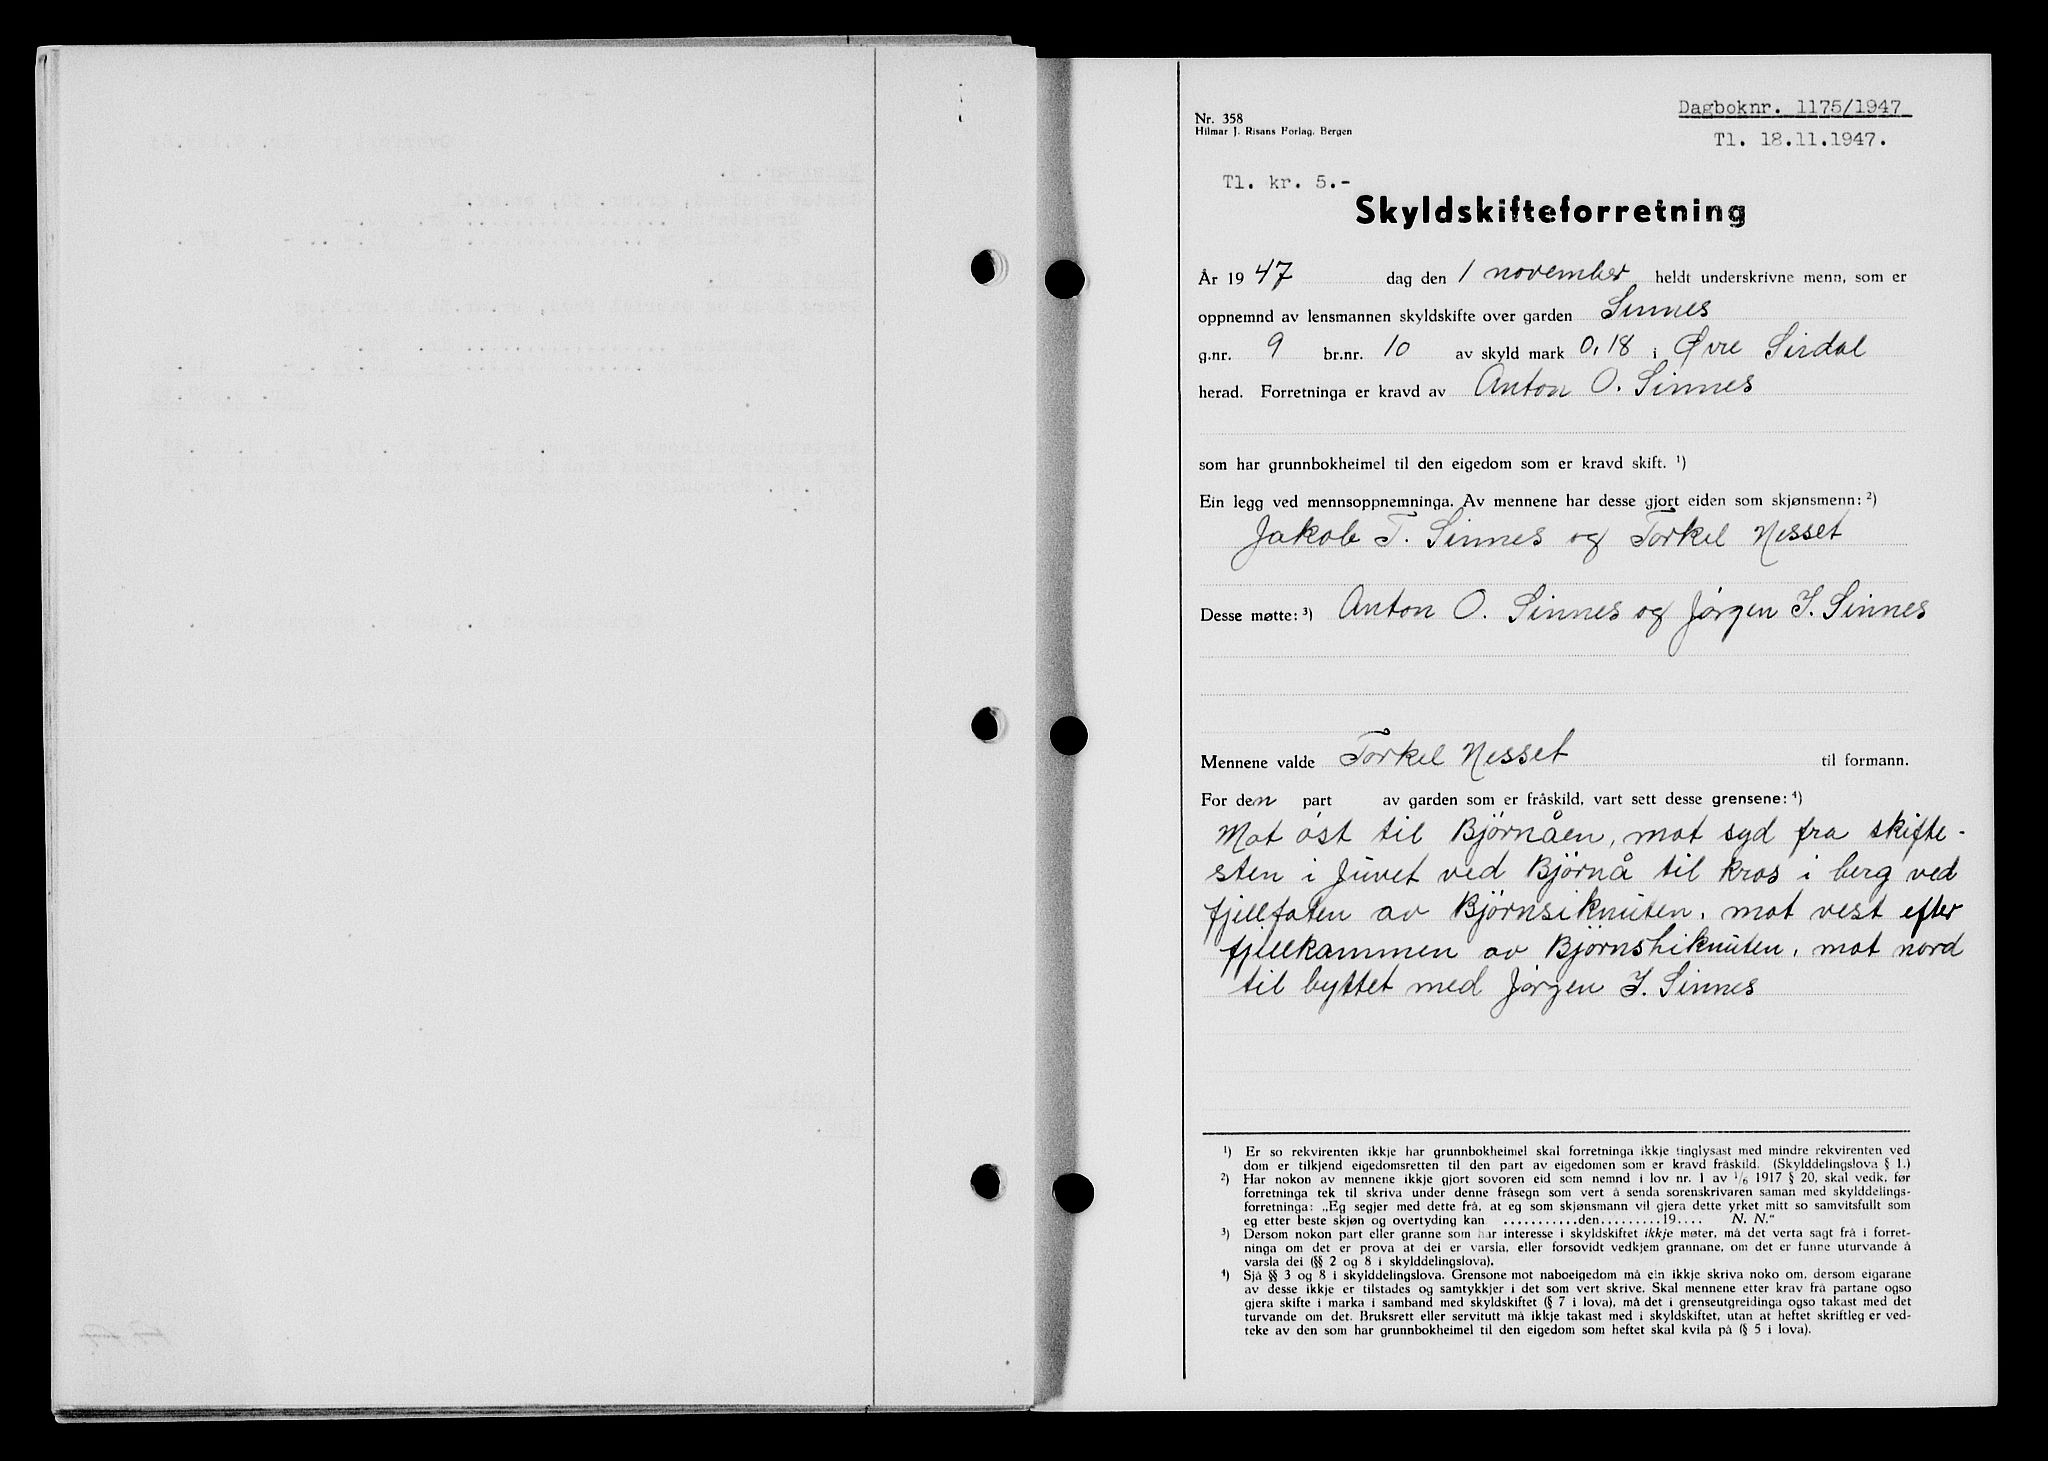 Dagboknr. 1175/1947
Nr. 358
Hilmar J. Risans Forlag, Bergen
Tl. 18.11.1947.
Tl. kr. 5.-
Skyldskifteforretning
År 1947 dag den 1 november heldt underskrivne menn, som er
oppnemnd av lensmannen skyldskifte over garden Sinnes
g.nr. 9 br.nr. 10 av skyld mark 0,18 i Øvre Sirdal
herad. Forretninga er kravd av Anton O. Sinnes
som har grunnbokheimel til den eigedom som er kravd skift. ¹)
Ein legg ved mennsoppnemninga. Av mennene har desse gjort eiden som skjønsmenn: ²)
Jakob T. Sinnes og Torkel Nesset
Desse møtte: ³) Anton O. Sinnes og Jørgen I. Sinnes
Mennene valde Torkel Nesset til formann.
For den part av garden som er fråskild, vart sett desse grensene: ⁴)
Mot öst til Björnåen, mot syd fra skifte-
sten i Juvet ved Björnå til kros i berg ved
fjellfoten av Björnsiknuten, mot vest efter
fjellkammen av Björnshiknuten, mot nord
til byttet med Jørgen I. Sinnes
¹) Er so rekvirenten ikkje har grunnbokheimel skal forretninga ikkje tinglysast med mindre rekvirenten ved
dom er tilkjend eigedomsretten til den part av eigedomen som er kravd fråskild. (Skylddelingslova § 1.)
²) Har nokon av mennene ikkje gjort sovoren eid som nemnd i lov nr. 1 av 1/6 1917 § 20, skal vedk. før
forretninga tek til skriva under denne fråsegn som vert å senda sorenskrivaren saman med skylddelings-
forretninga: „Eg segjer med dette frå, at eg som skjønsmann vil gjera dette yrket mitt so samvitsfullt som
eg etter beste skjøn og overtyding kan ...........den.........19.... N. N."
³) Dersom nokon part eller granne som har interesse i skyldskiftet ikkje møter, må det verta sagt frå i forret-
ninga om det er prova at dei er varsla, eller forsovidt vedkjem grannane, om det er funne uturvande å
varsla dei (§§ 2 og 8 i skylddelingslova).
⁴) Sjå §§ 3 og 8 i skylddelingslova. Grensone mot naboeigedom må ein ikkje skriva noko om, dersom eigarane
av desse ikkje er tilstades og samtykkjer i det som vert skrive. Skal mennene etter krav frå partane ogso
gjera skifte i marka i samband med skyldskiftet (§ 7 i lova), må det i grenseutgreidinga ogso takast med det
turvande om det. Bruksrett eller servitutt må ikkje takast med i skyldskiftet, utan at heftet skriftleg er ved-
teke av den som har grunnbokheimel til den eigedom som heftet skal kvila på (§ 5 i lova).